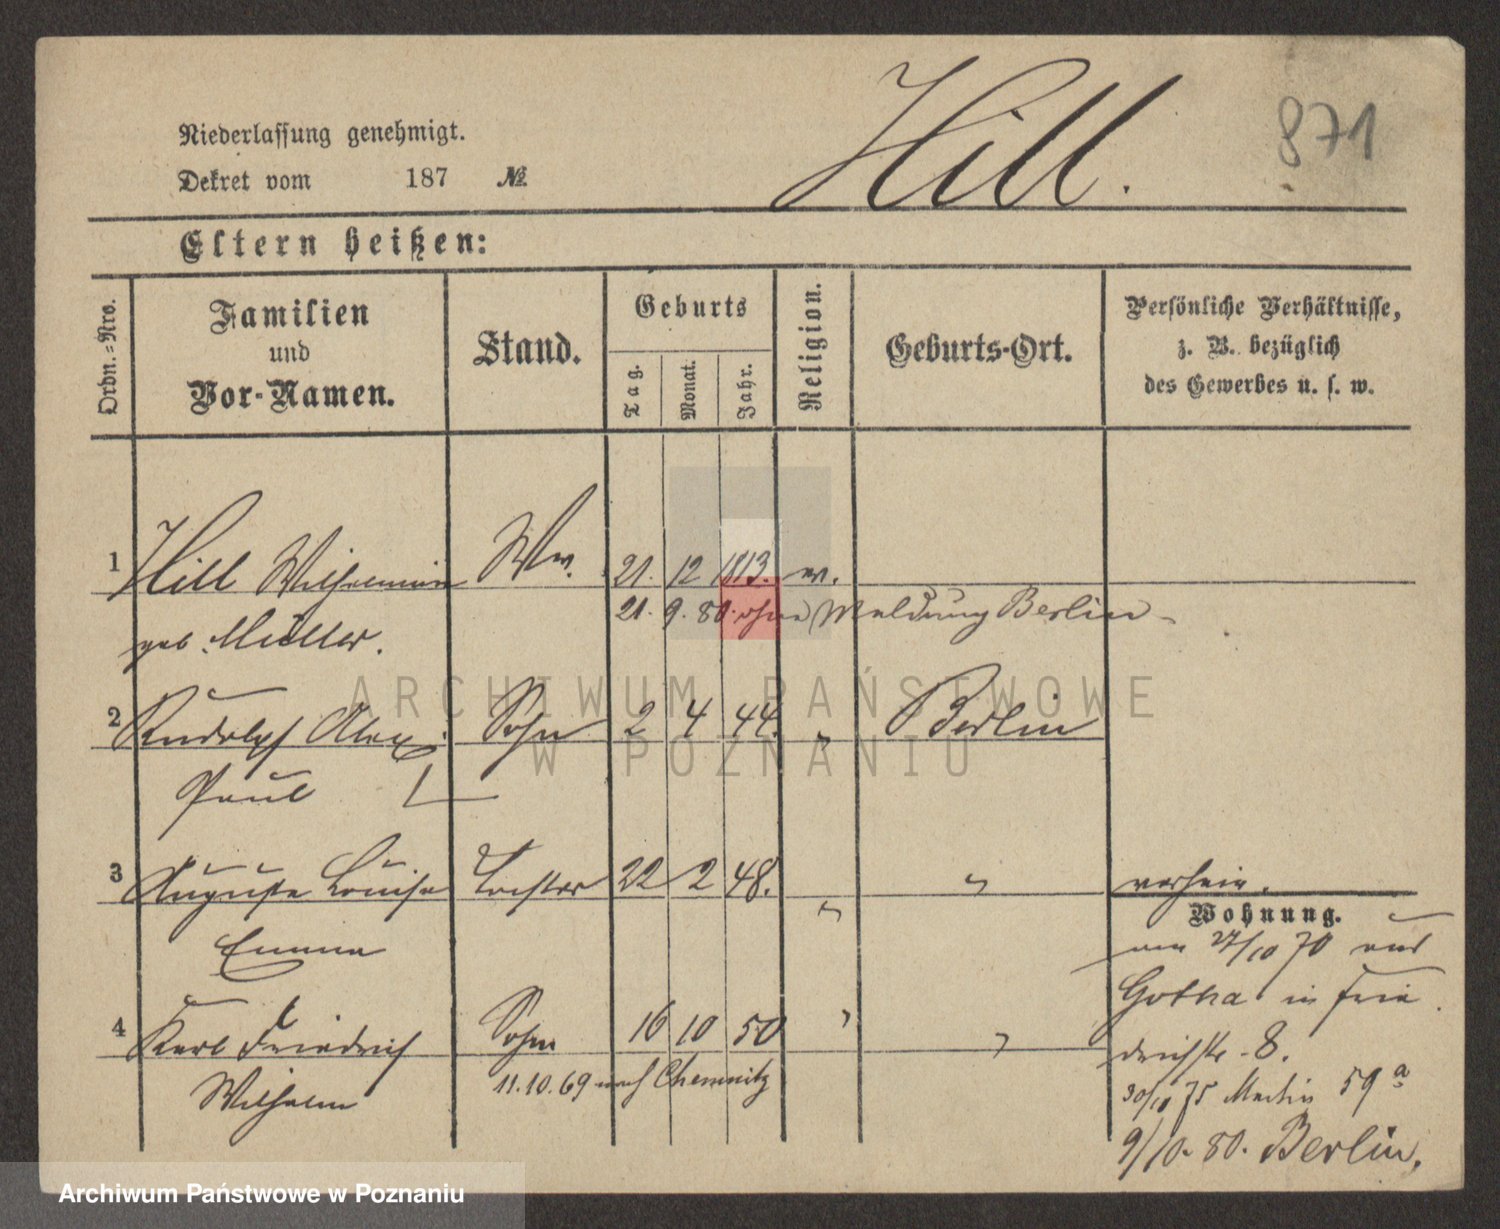 Hill.
871
Niederlassung genehmigt.
Dekret vom 187 №
Eltern heißen:
Ordn.=Nro.
Familien
und
Vor-Namen.
Stand.
Geburts
Tag.
Monat.
Jahr.
Religion.
Geburts-Ort.
Persönliche Verhältnisse,
z. B. bezüglich
des Gewerbes u. s. w.
1 Hill Wilhelmine Ww. 21. 12 1813. ev.
21. 9. 80. ohne Meldung Berlin
geb. Müller.
2 Rudolph Alex. Sohn 2 4 44. " Berlin
Paul
3 Auguste Louise Tochter 22 2 48. " "
Wohnung.
Emma
am 27/10 70 aus
Gotha in Frie
4 Karl Friedrich Sohn 16 10 50 " "
drichstr. 8.
Wilhelm
11.10.69 nach Chemnitz
30/10 75 Martin 59 a
9/10. 80. Berlin.
ARCHIWUM PAŃSTWOWE
W POZNANIU
Archiwum Państwowe w Poznaniu